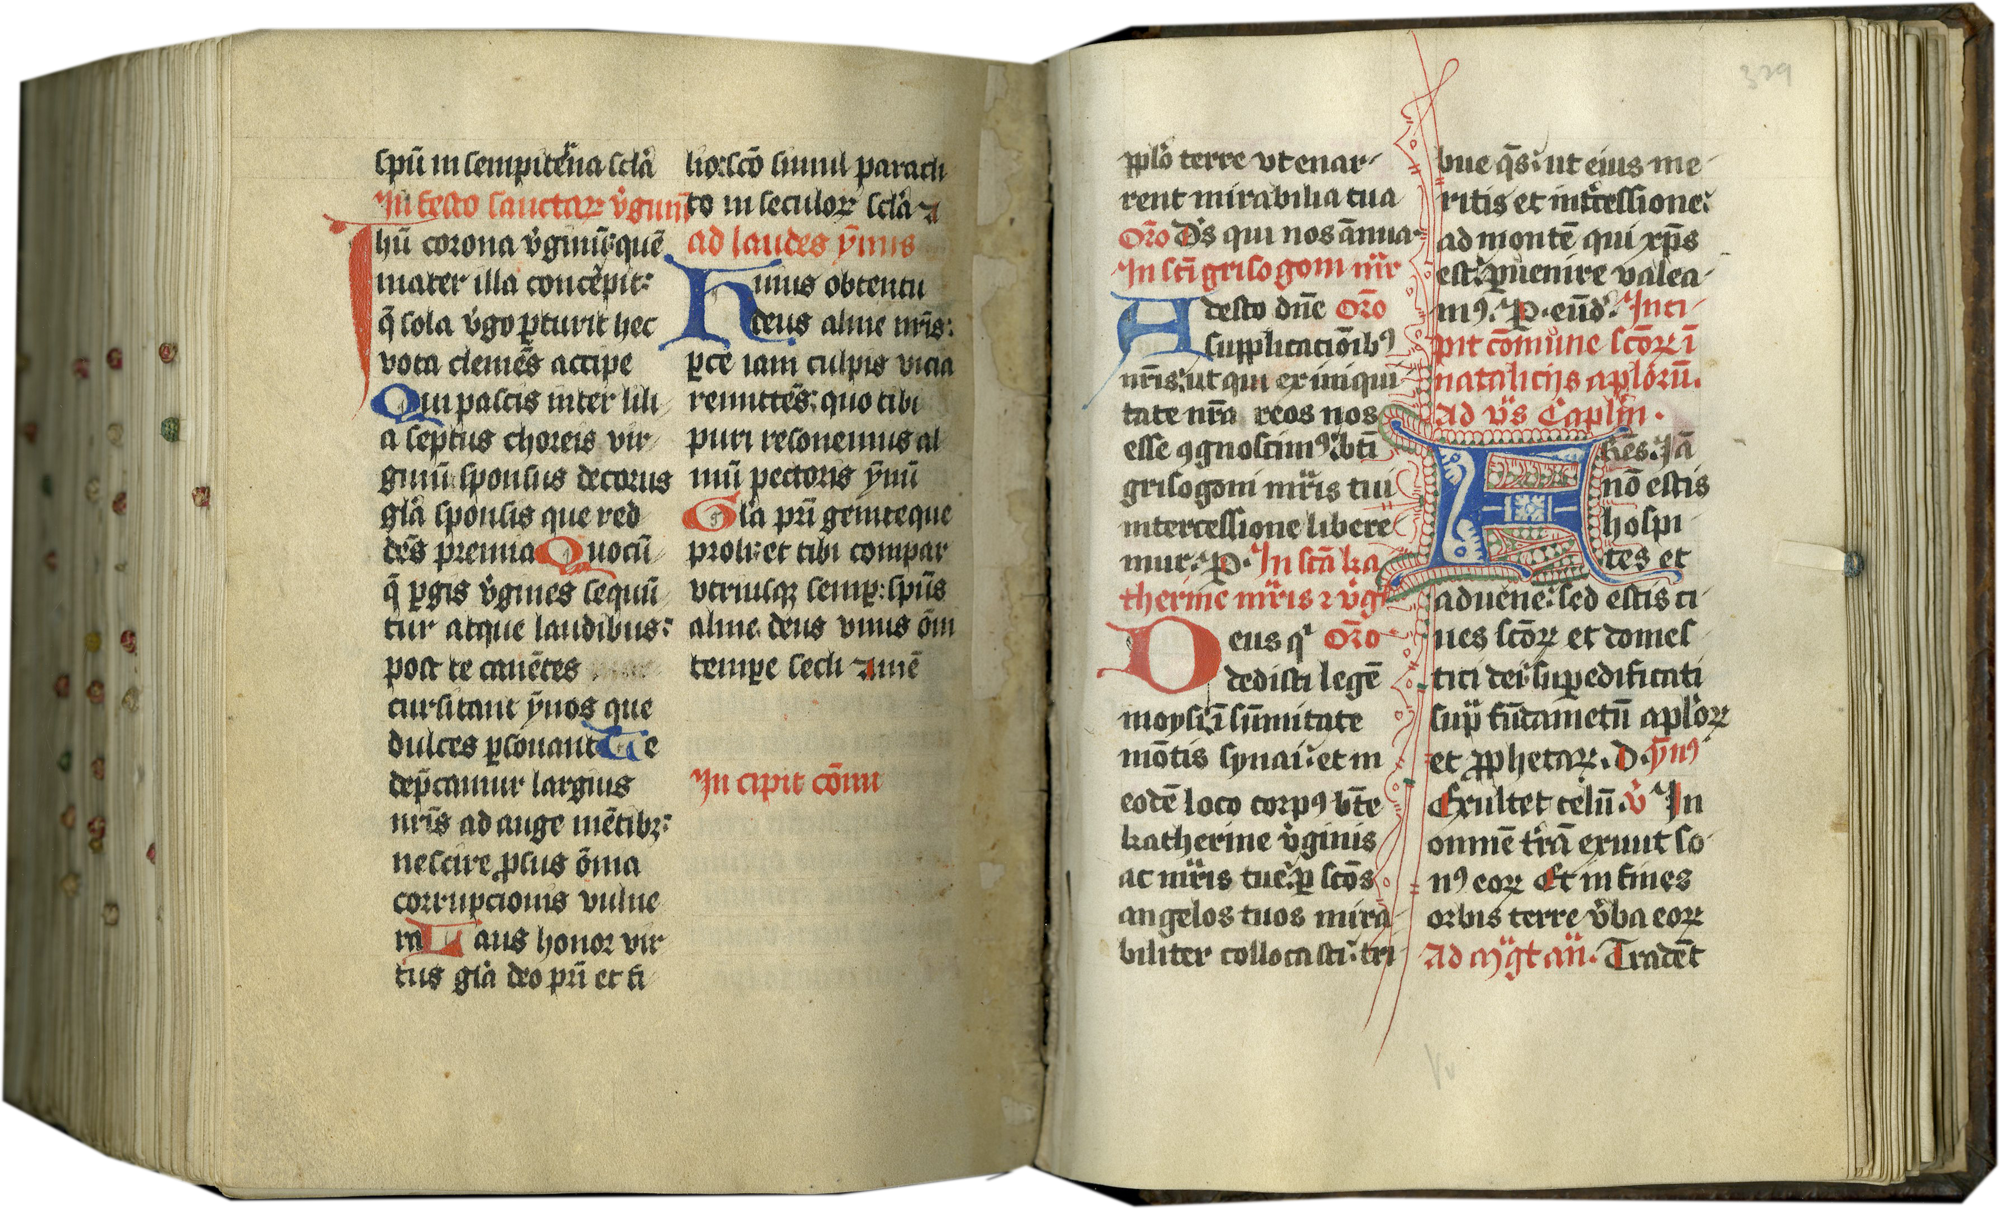 spū in sempit̾na scl̾a
In festo sanctaꝝ v̾ginū
Ihū corona v̾ginū: quē
mater illa concēpit:
q̄ sola v̾go ꝑturit hec
vota clemēs accipe
Qui pascis inter lili
a septus choreis vir
ginū sponsus decorus
gl̾a sponsis que red
dēs premia Quocū
q̄ ꝑgis v̾gines sequū
tur atque laudibus:
post te canētes
cursitant ȳnos que
dulces ꝑsonant Te
dep̄camur largius
nr̄is ad auge mētibꝫ:
nescire ꝓsus ōma
corrupcionis vulne
ra Laus honor vir
tus gl̾a deo pr̄i et fi
lio: scō simul paracli
to in seculoꝝ scl̾a a
ad laudes ȳmus
Hvius obtentu
deus alme nr̄is:
ꝑce iam culpis vicia
remittēs: quo tibi
puri resonemus al
mū pectoris ȳnū
Gl̾a pr̄i geniteque
proli: et tibi compar
vtriusqꝫ semꝑ: spūs
alme. deus vnus ōni
tempe secli amē
In cipit cōmu
329
ꝓplo terre vt enar-
rent mirabilia tua
Or̄o Ds̄ qui nos ānua-
In sc̄i grisogoni mr̄is
Adesto dn̄e Or̄o
supplicacioībꝰ
nr̄is: ut qui ex iniqui
tate nr̄a reos nos
esse ꝯgnoscimꝰ: bt̄i
grisogoni mr̄is tui
intercessione libere
mur. P. In sc̄a ka
therine mr̄is ⁊ v̾g
Deus qⁱ Or̄o
dedisti legē
moysi ī sūmitate
mōtis synai: et in
eodē loco corpꝰ bt̄e
katherine v̾ginis
ac mr̄is tue: ꝑ scōs
angelos tuos mira
biliter collocasti: tri
bue qs̄: ut eius me-
ritis et int̾cessione:
ad montē qui xp̄s
est: ꝑuenire valea-
mꝰ. P. eūd̾. Inci-
pit cōmune scōꝝ ī
natalicijs aplōrū.
Ad vs̄ Caplm̄.
Fr̄es. Iā
nō estis
hospi
tes et
aduene: sed estis ci
ues scōꝝ et domes
tici dei: suꝑedificati
suꝑ fūdametū aplōꝝ
et ꝓphetaꝝ. D. ȳnꝰ
Exultet celū. v̾ In
omnē tr̄a exiuit so-
nꝰ eoꝝ Et in fines
orbis terre v̾ba eoꝝ
Ad mg̾t an̄. Tradēt